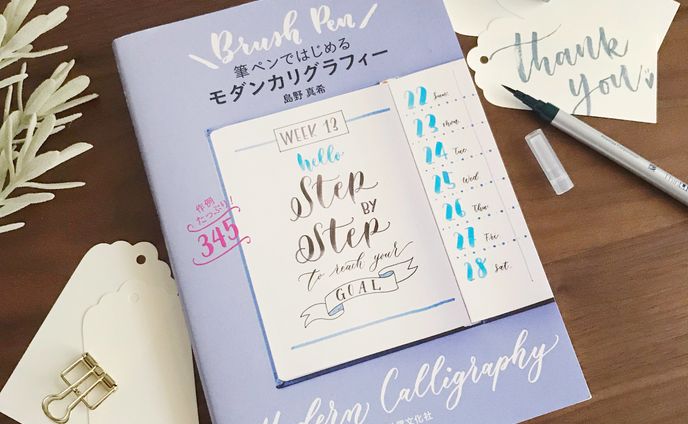 Brush Pen
筆ペンではじめる
モダンカリグラフィー
島野 真希
WEEK 13
hello
Step
BY
Step
to reach your
GOAL
22 Sun.
23 Mon
24 Tue
25 Wed
26 Thu
27 Fri
28 Sat.
作例
たっぷり!
345
Modern Calligraphy
文化社
thank
you